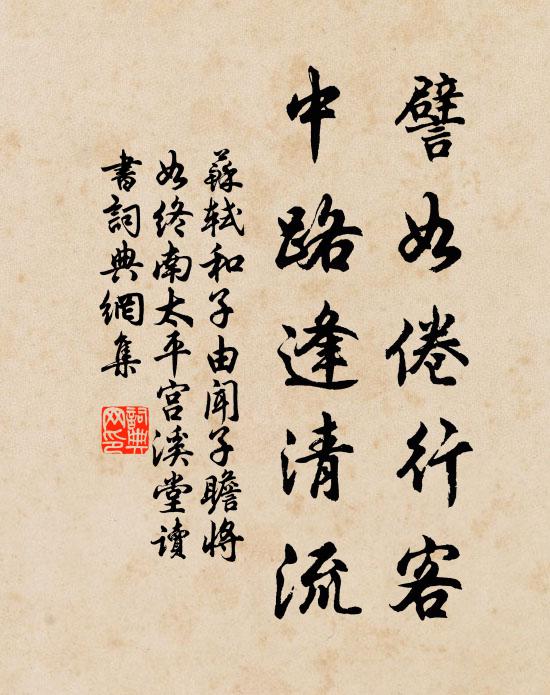 譬如倦行客
中路逢清流
蘇軾和子由聞子瞻將
如終南太平宮溪堂讀
書詞典網集
詞典网印